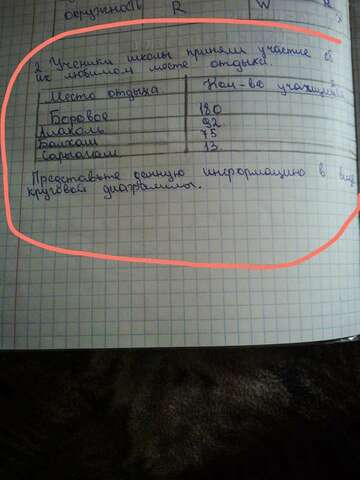 окружности R W
2. Ученики школы приняли участие в
их любимом месте отдыха.
Место отдыха Кол-во учащихся
Боровое 180
Алаколь 92
Балхаш 75
Сарыагаш 13
Представьте данную информацию в виде
круговой диаграммы.